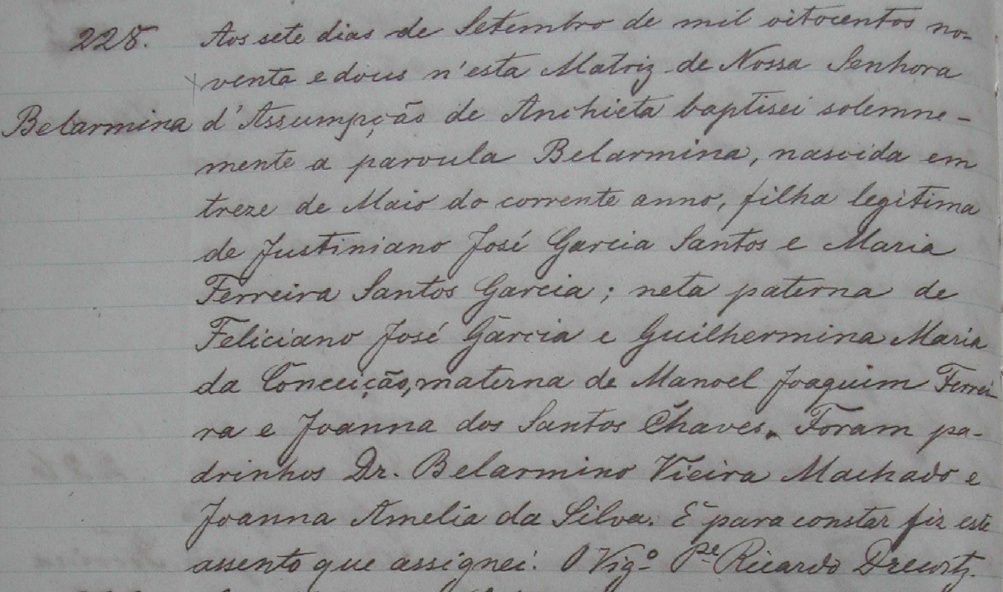 228. Aos sete dias de Setembro de mil oitocentos no-
venta e dous n'esta Matriz de Nossa Senhora
Belarmina d'Assumpção de Anchieta baptisei solemne-
mente a parvula Belarmina, nascida em
treze de Maio do corrente anno, filha legitima
de Justiniano José Garcia Santos e Maria
Ferreira Santos Garcia; neta paterna de
Feliciano José Garcia e Guilhermina Maria
da Conceição, materna de Manoel Joaquim Ferrei
ra e Joanna dos Santos Chaves. Foram pa-
drinhos Dr. Belarmino Vieira Machado e
Joanna Amelia da Silva. E para constar fiz este
assento que assignei. O Vigº Pe Ricardo Drewitz.